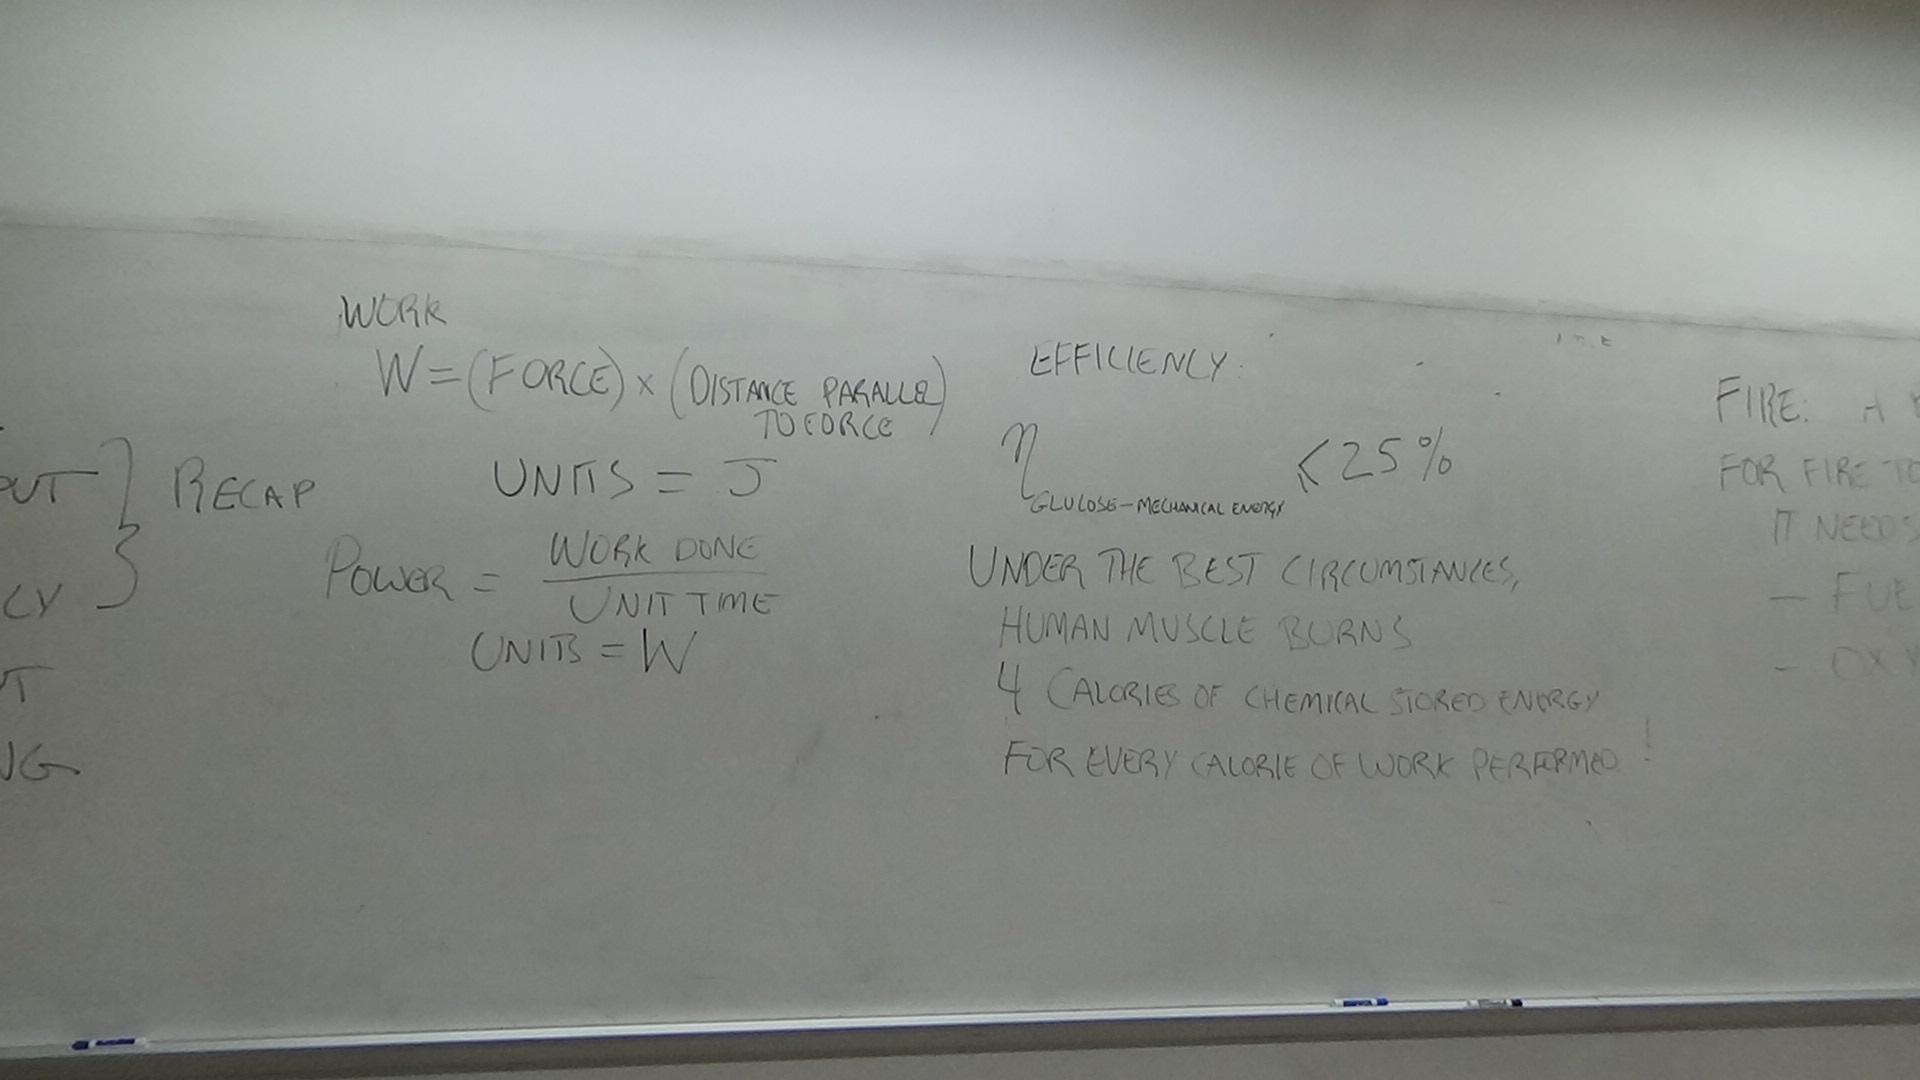 WORK
W = (FORCE) × (DISTANCE PARALLEL
TO FORCE)
UNITS = J
POWER = WORK DONE
UNIT TIME
UNITS = W
RECAP
EFFICIENCY:
η GLUCOSE-MECHANICAL ENERGY < 25%
UNDER THE BEST CIRCUMSTANCES,
HUMAN MUSCLE BURNS
4 CALORIES OF CHEMICAL STORED ENERGY
FOR EVERY CALORIE OF WORK PERFORMED!
FIRE: A
FOR FIRE TO
IT NEEDS
- FUE
- OXY